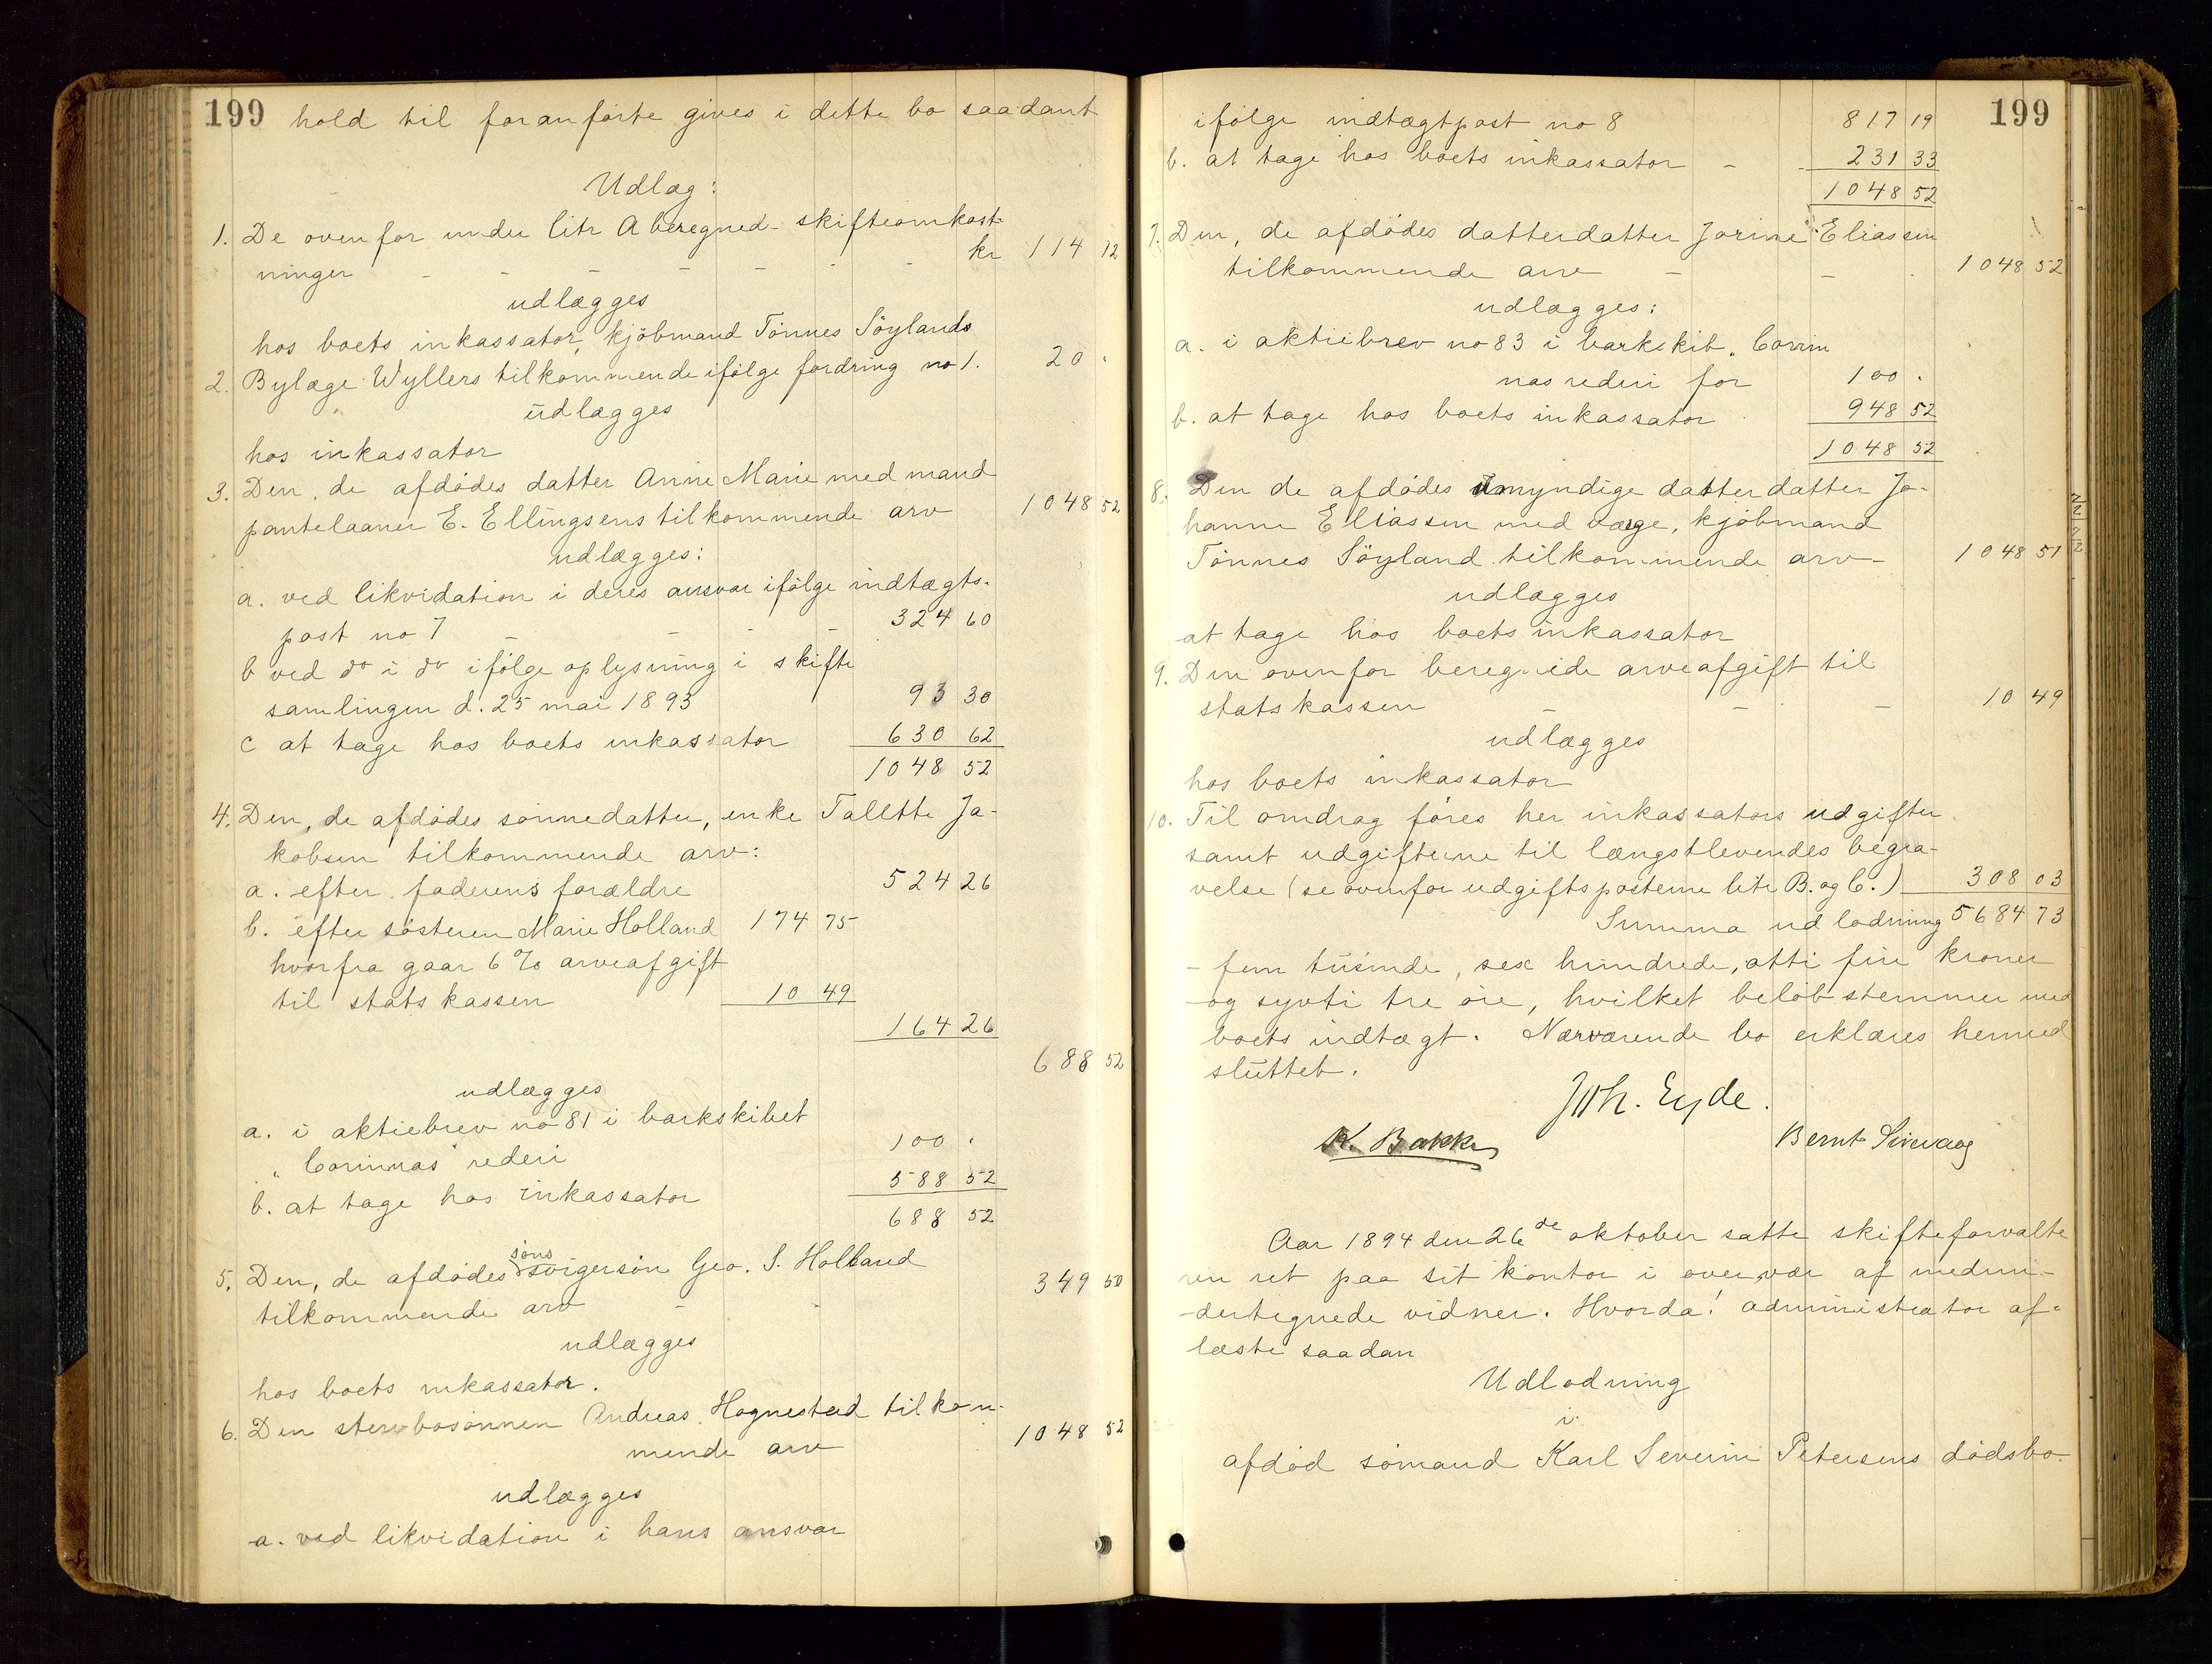 199 hold til foranførte gives i dette bo saadant
Udlæg:
1. De ovenfor under litr A beregned skifteomkost-
ninger - - - - - - - kr 114 12
udlægges
hos boets inkassator, kjøbmand Tønnes Søylands
2. Bylæge Wyllers tilkommende ifølge fordring no 1. 20 "
udlægges
hos inkassator
3. Den, de afdødes datter Anne Marie med mand
pantelaaner E. Ellingsens tilkommende arv 1048 52
udlægges:
a. ved likvidation i deres ansvar ifølge indtægts-
post no 7 - - - - 324 60
b ved do i do ifølge oplysning i skifte
samlingen d. 25 mai 1893 93 30
c at tage hos boets inkassator 630 62
1048 52
4. Den, de afdødes sønnedatter, enke Talette Ja-
kobsen tilkommende arv:
a. efter faderens forældre 524 26
b. efter søsteren Marie Holland 174 75
hvorfra gaar 6% arveafgift
til statskassen 10 49
164 26
688 52
udlægges
a. i aktiebrev no 81 i barkskibet
"Corinnas rederi 100 "
b. at tage hos inkassator 588 52
688 52
5. Den, de afdødes søns svigersøn Geo. S. Holland
tilkommende arv - - 349 50
udlægges
hos boets inkassator.
6. Den stervbosønnen Andreas Hognestad tilkom-
mende arv 1048 52
udlægges
a. ved likvidation i hans ansvar
199
ifølge indtægtpost no 8 817 19
b. at tage hos boets inkassator - - 231 33
1048 52
7. Den, de afdødes datterdatter Jorine Eliassen
tilkommende arv - - 1048 52
udlægges:
a. i aktiebrev no 83 i barkskib. Corin
nas rederi for 100 "
b. at tage hos boets inkassator 948 52
1048 52
8. Den de afdødes umyndige datterdatter Jo-
hanne Eliassen med værge, kjøbmand
Tønnes Søyland tilkommende arv - 1048 51
udlægges
at tage hos boets inkassator
9. Den ovenfor beregnede arveafgift til
statskassen - - - 10 49
udlægges
hos boets inkassator
10. Til omdrag føres her inkassators udgifter
samt udgifterne til længstlevendes begra-
velse (se ovenfor udgiftsposterne litr B. og C.) 308 03
Summa udlodning 5684 73
- fem tusinde, sex hundrede, otti fire kroner
og sytti tre øre, hvilket beløb stemmer med
boets indtægt. Nærværende bo erklæres hermed
sluttet.
Joh. Eyde.
K. Bakke Bernt Sirevaag
Aar 1894 den 26de oktober satte skifteforvalte
ren ret paa sit kontor i overvær af medun-
dertegnede vidner. Hvorda! administrator af-
læste saadan
Udlodning
i
afdød sømand Karl Severin Petersens dødsbo